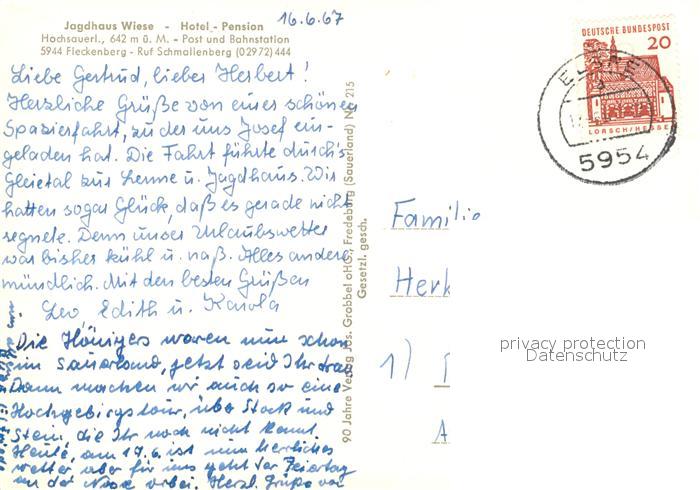 16.6.67
Jagdhaus Wiese - Hotel - Pension
Hochsauerl., 642 m ü. M. - Post und Bahnstation
5944 Fleckenberg - Ruf Schmallenberg (02972) 444
Liebe Gertrud, lieber Herbert!
Herzliche Grüße von einer schönen
Spazierfahrt, zu der uns Josef ein-
geladen hat. Die Fahrt führte durchs
zur Lenne u. Jagdhaus. Wir
hatten sogar Glück, daß es gerade nicht
regnete. Denn unser Urlaubswetter
war bisher kühl u. naß. Alles andere
mündlich. Mit den besten Grüßen
Leo Edith u. Karola
Die Hönigers waren nun schon
im Sauerland, jetzt seid Ihr dran
Dann machen wir auch so eine
Hochgebirgstour, über Stock und
Stein, die Ihr noch nicht kennt.
Heute, am 17.6. ist nun herrliches
Wetter aber für uns geht der Feiertag
an der Nase vorbei. Herzl. Grüße von
90 Jahre Verlag Jos. Grobbel oHG, Fredeburg (Sauerland) Nr. 215
Gesetzl. gesch.
DEUTSCHE BUNDESPOST
20
LORSCH/HESSEN
5954
Familie
Herb
1)
A
privacy protection
Datenschutz